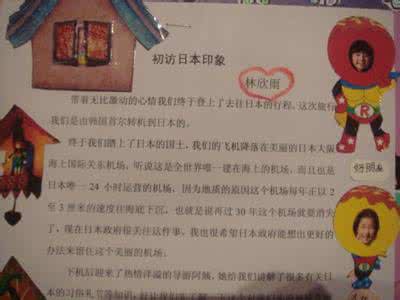 初访日本印象
林欣雨
带着无比激动的心情我们终于登上了去往日本的行程，这次旅行
我们是由韩国首尔转机到日本的。
终于我们踏上了日本的国土，我们的飞机降落在美丽的日本大阪
海上国际关东机场，听说这是全世界唯一建在海上的机场，而且也是
日本唯一 24 小时运营的机场，因为地质的原因这个机场每年正以 2
至 3 厘米的速度往海底下沉，也就是说再过 30 年这个机场就要消失
了，现在日本政府很关注这件事，我也很希望日本政府能想出更好的
办法来留住这个美丽的机场。
下机后迎来了热情洋溢的导游阿姨，她给我们讲解了很多有关日
本的习俗礼节等知识，
R
好朋友
R